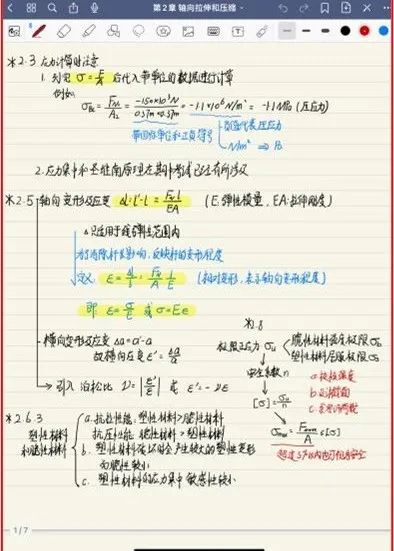 第2章 轴向拉伸和压缩
*2.3 应力计算时注意
1. 列定 σ=F/A 后代入带单位的数据进行计算
例如:
σ_BC = F_N2/A_2 = -150×10³N/0.37m×0.37m = -1.1×10⁶N/m² = -1.1MPa (压应力)
带回作单位和正负符号
负值代表压应力
N/m² ⇒ Pa
2. 应力集中和圣维南原理在其中考试已经有所涉及
*2.5 轴向变形及应变 Δl=l'-l = F_N l/EA (E:弹性模量, EA:拉伸刚度)
Δ只适用于线弹性范围内
为了消除杆长影响,反映杆的变形程度
定义: ε=Δl/l=F_N/A·1/E (相对变形,表示轴向变形程度)
即 ε=σ/E 或 σ=Eε
横向变形及应变 Δa=a'-a
故横向应变 ε'=Δa/a
引入 泊松比 ν=|ε'/ε| 或 ε'=-νε
*.8
极限应力 σu
脆性材料强度极限 σb
塑性材料屈服极限 σs
安全系数 n
[σ]=σu/n
a. 校核强度
b. 设计截面
c. 求许可荷载
σmax = Fmax/A ≤[σ]
超过5%以内也可视为安全
*2.6.3
塑性材料
和脆性材料
a. 抗拉性能:塑性材料>脆性材料
抗压性能 脆性材料>塑性材料
b. 塑性材料破坏时会产生较大的塑性变形
而脆性较小
c. 塑性材料的应力集中敏感性较小
1/7